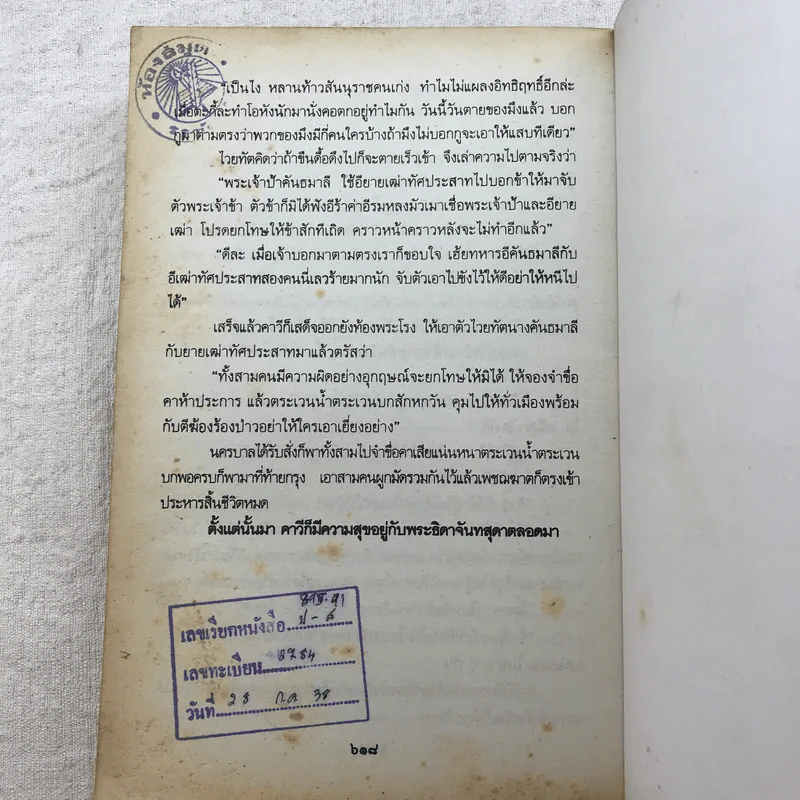 ห้องสมุด
"เป็นไง หลานท้าวสันนุราชคนเก่ง ทำไมไม่แผลงอิทธิฤทธิ์อีกล่ะ
เมื่อตะกี้ละทำโอหังนักมานั่งคอตกอยู่ทำไมกัน วันนี้วันตายของมึงแล้ว บอก
กูมาตามตรงว่าพวกของมึงมีกี่คนใครบ้างถ้ามึงไม่บอกกูจะเอาให้แสบทีเดียว"
ไวยทัตคิดว่าถ้าขืนดื้อดึงไปก็จะตายเร็วเข้า จึงเล่าความไปตามจริงว่า
"พระเจ้าป้าคันธมาลี ใช้อียายเฒ่าทัศประสาทไปบอกข้าให้มาจับ
ตัวพระเจ้าข้า ตัวข้าก็มิได้ฟังอีร้าค่าอีรมหลงมัวเมาเชื่อพระเจ้าป้าและอียาย
เฒ่า โปรดยกโทษให้ข้าสักทีเถิด คราวหน้าคราวหลังจะไม่ทำอีกแล้ว"
"ดีละ เมื่อเจ้าบอกมาตามตรงเราก็ขอบใจ เฮ้ยทหารอีคันธมาลีกับ
อีเฒ่าทัศประสาทสองคนนี่เลวร้ายมากนัก จับตัวเอาไปขังไว้ให้ดีอย่าให้หนีไป
ได้"
เสร็จแล้วคาวีก็เสด็จออกยังท้องพระโรง ให้เอาตัวไวยทัตนางคันธมาลี
กับยายเฒ่าทัศประสาทมาแล้วตรัสว่า
"ทั้งสามคนมีความผิดอย่างอุกฤษณ์จะยกโทษให้มิได้ ให้จองจำขื่อ
คาห้าประการ แล้วตระเวนน้ำตระเวนบกสักหกวัน คุมไปให้ทั่วเมืองพร้อม
กับตีฆ้องร้องป่าวอย่าให้ใครเอาเยี่ยงอย่าง"
นครบาลได้รับสั่งก็พาทั้งสามไปจำขื่อคาเสียแน่นหนาตระเวนน้ำตระเวน
บกพอครบก็พามาที่ท้ายกรุง เอาสามคนผูกมัดรวมกันไว้แล้วเพชฌฆาตก็ตรงเข้า
ประหารสิ้นชีวิตหมด
ตั้งแต่นั้นมา คาวีก็มีความสุขอยู่กับพระธิดาจันทสุดาตลอดมา
เลขเรียกหนังสือ ป-ส
เลขทะเบียน 2784
วันที่ 28 ก.ค. 38
๖๑๘